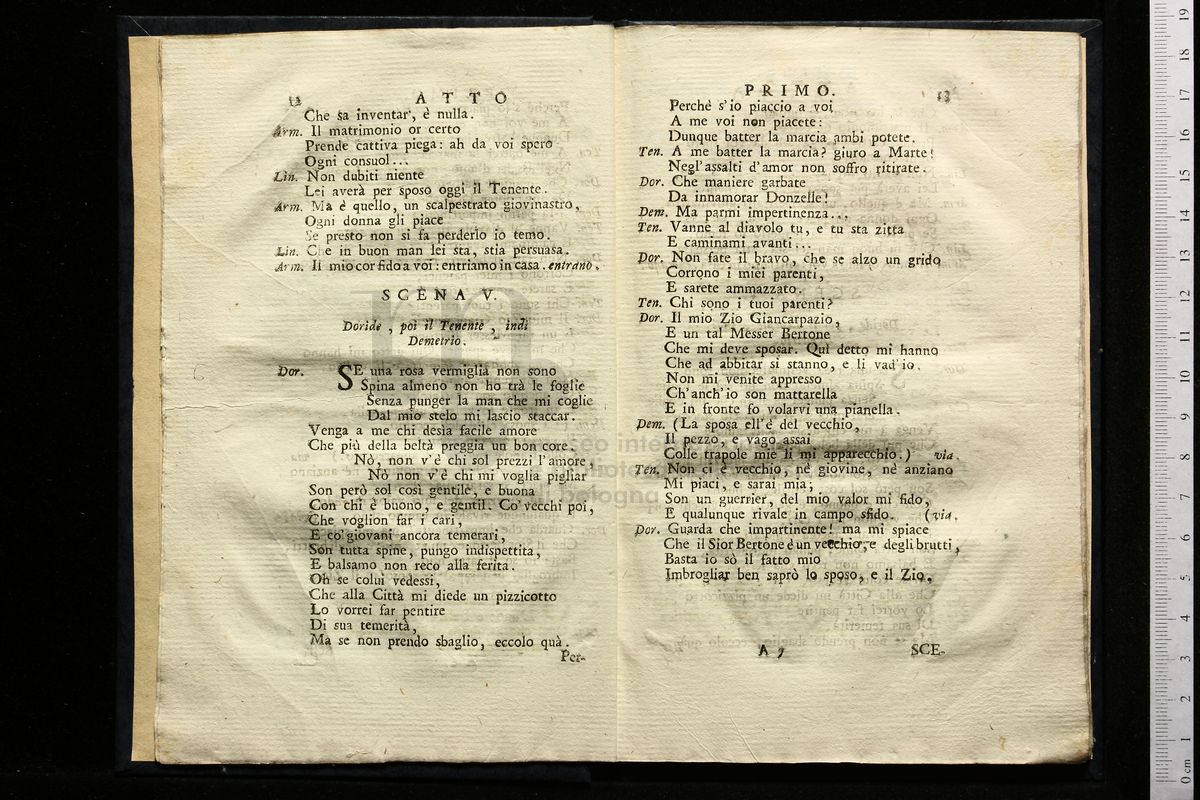 12 ATTO
Che sa inventar', è nulla.
Arm. Il matrimonio or certo
Prende cattiva piega: ah da voi spero
Ogni consuol...
Lin. Non dubiti niente
Lei averà per sposo oggi il Tenente.
Arm. Ma è quello, un scalpestrato giovinastro,
Ogni donna gli piace
Se presto non si fa perderlo io temo.
Lin. Che in buon man lei sta, stia persuasa.
Arm. Il mio cor fido a voi: entriamo in casa. entrano.
SCENA V.
Doride, poi il Tenente, indi
Demetrio.
Dor. SE una rosa vermiglia non sono
Spina almeno non ho trà le foglie
Senza punger la man che mi coglie
Dal mio stelo mi lascio staccar.
Venga a me chi desìa facile amore
Che più della beltà preggia un bon core.
Nò, non v'è chi sol prezzi l'amore,
Nò non v'è chi mi voglia pigliar
Son però sol così gentile, e buona
Con chi è buono, e gentil. Co' vecchi poi,
Che voglion far i cari,
E co' giovani ancora temerari,
Son tutta spine, pungo indispettita,
E balsamo non reco alla ferita.
Oh se colui vedessi,
Che alla Città mi diede un pizzicotto
Lo vorrei far pentire
Di sua temerità,
Ma se non prendo sbaglio, eccolo quà.
Per-
PRIMO. 13
Perchè s'io piaccio a voi
A me voi non piacete:
Dunque batter la marcia ambi potete.
Ten. A me batter la marcia? giuro a Marte!
Negl'assalti d'amor non soffro ritirate.
Dor. Che maniere garbate
Da innamorar Donzelle!
Dem. Ma parmi impertinenza...
Ten. Vanne al diavolo tu, e tu sta zitta
E caminami avanti...
Dor. Non fate il bravo, che se alzo un grido
Corrono i miei parenti,
E sarete ammazzato.
Ten. Chi sono i tuoi parenti?
Dor. Il mio Zio Giancarpazio,
E un tal Messer Bertone
Che mi deve sposar. Quì detto mi hanno
Che ad abbitar si stanno, e lì vad'io.
Non mi venite appresso
Ch'anch'io son mattarella
E in fronte fo volarvi una pianella.
Dem. (La sposa ell'è del vecchio,
Il pezzo, e vago assai
Colle trapole mie li mi apparecchio.) via.
Ten. Non ci è vecchio, nè giovine, nè anziano
Mi piaci, e sarai mia;
Son un guerrier, del mio valor mi fido,
E qualunque rivale in campo sfido. (via.
Dor. Guarda che impartinente! ma mi spiace
Che il Sior Bertone è un vecchio, e degli brutti,
Basta io sò il fatto mio
Imbrogliar ben saprò lo sposo, e il Zio.
A 7 SCE-